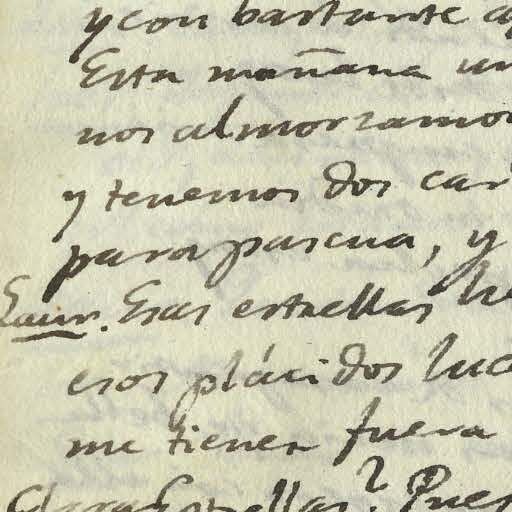 y con bastante ap
Esta mañana un
nos almorzamos
y tenemos dos car
para pascua, y
Laur. Esas estrellas he
esos plácidos luce
me tienen fuera
Clara Estrellas? Pues